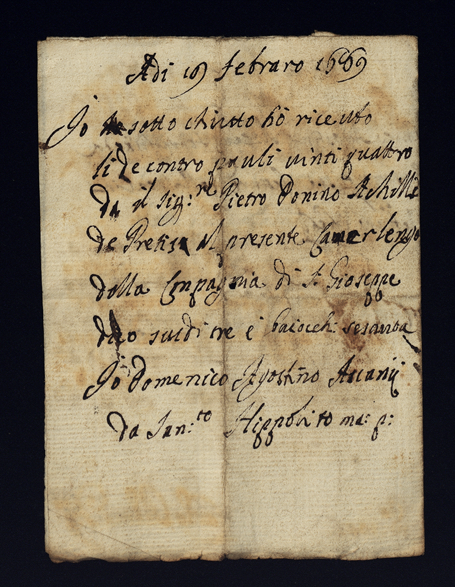 Adi 19 febraro 1669
Io sotto chritto hò riceuto
di contro pauli uinti quattro
da il sig:re Pietro Donino Achille
de al presente Camerlengo
della Compagnia di S. Gioseppe
dico scudi tre e baiocchi sesanta
Io Domenico Agostino Ascanij
da San:to Hippolito ma: p: